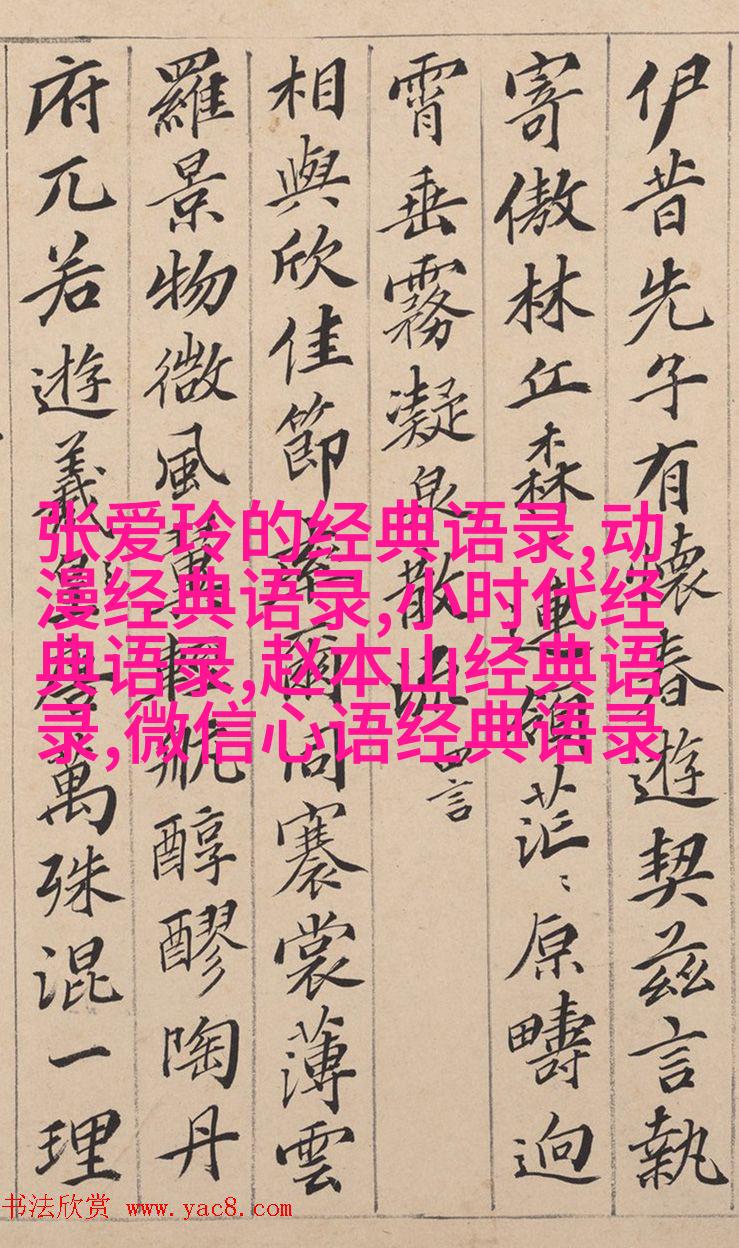 伊昔先子有懷春遊契茲言執
寄傲林丘森〻連領茫〻原疇迥
霄垂霧凝泉散流 四言
相與欣佳節率爾同褰裳薄雲
羅景物微風翼輕航醇醪陶丹
府兀若遊羲唐萬殊混一理
张爱玲的经典语录,动
漫经典语录,小时代经
典语录,赵本山经典语
录,微信心语经典语录
书法欣赏 www.yac8.com